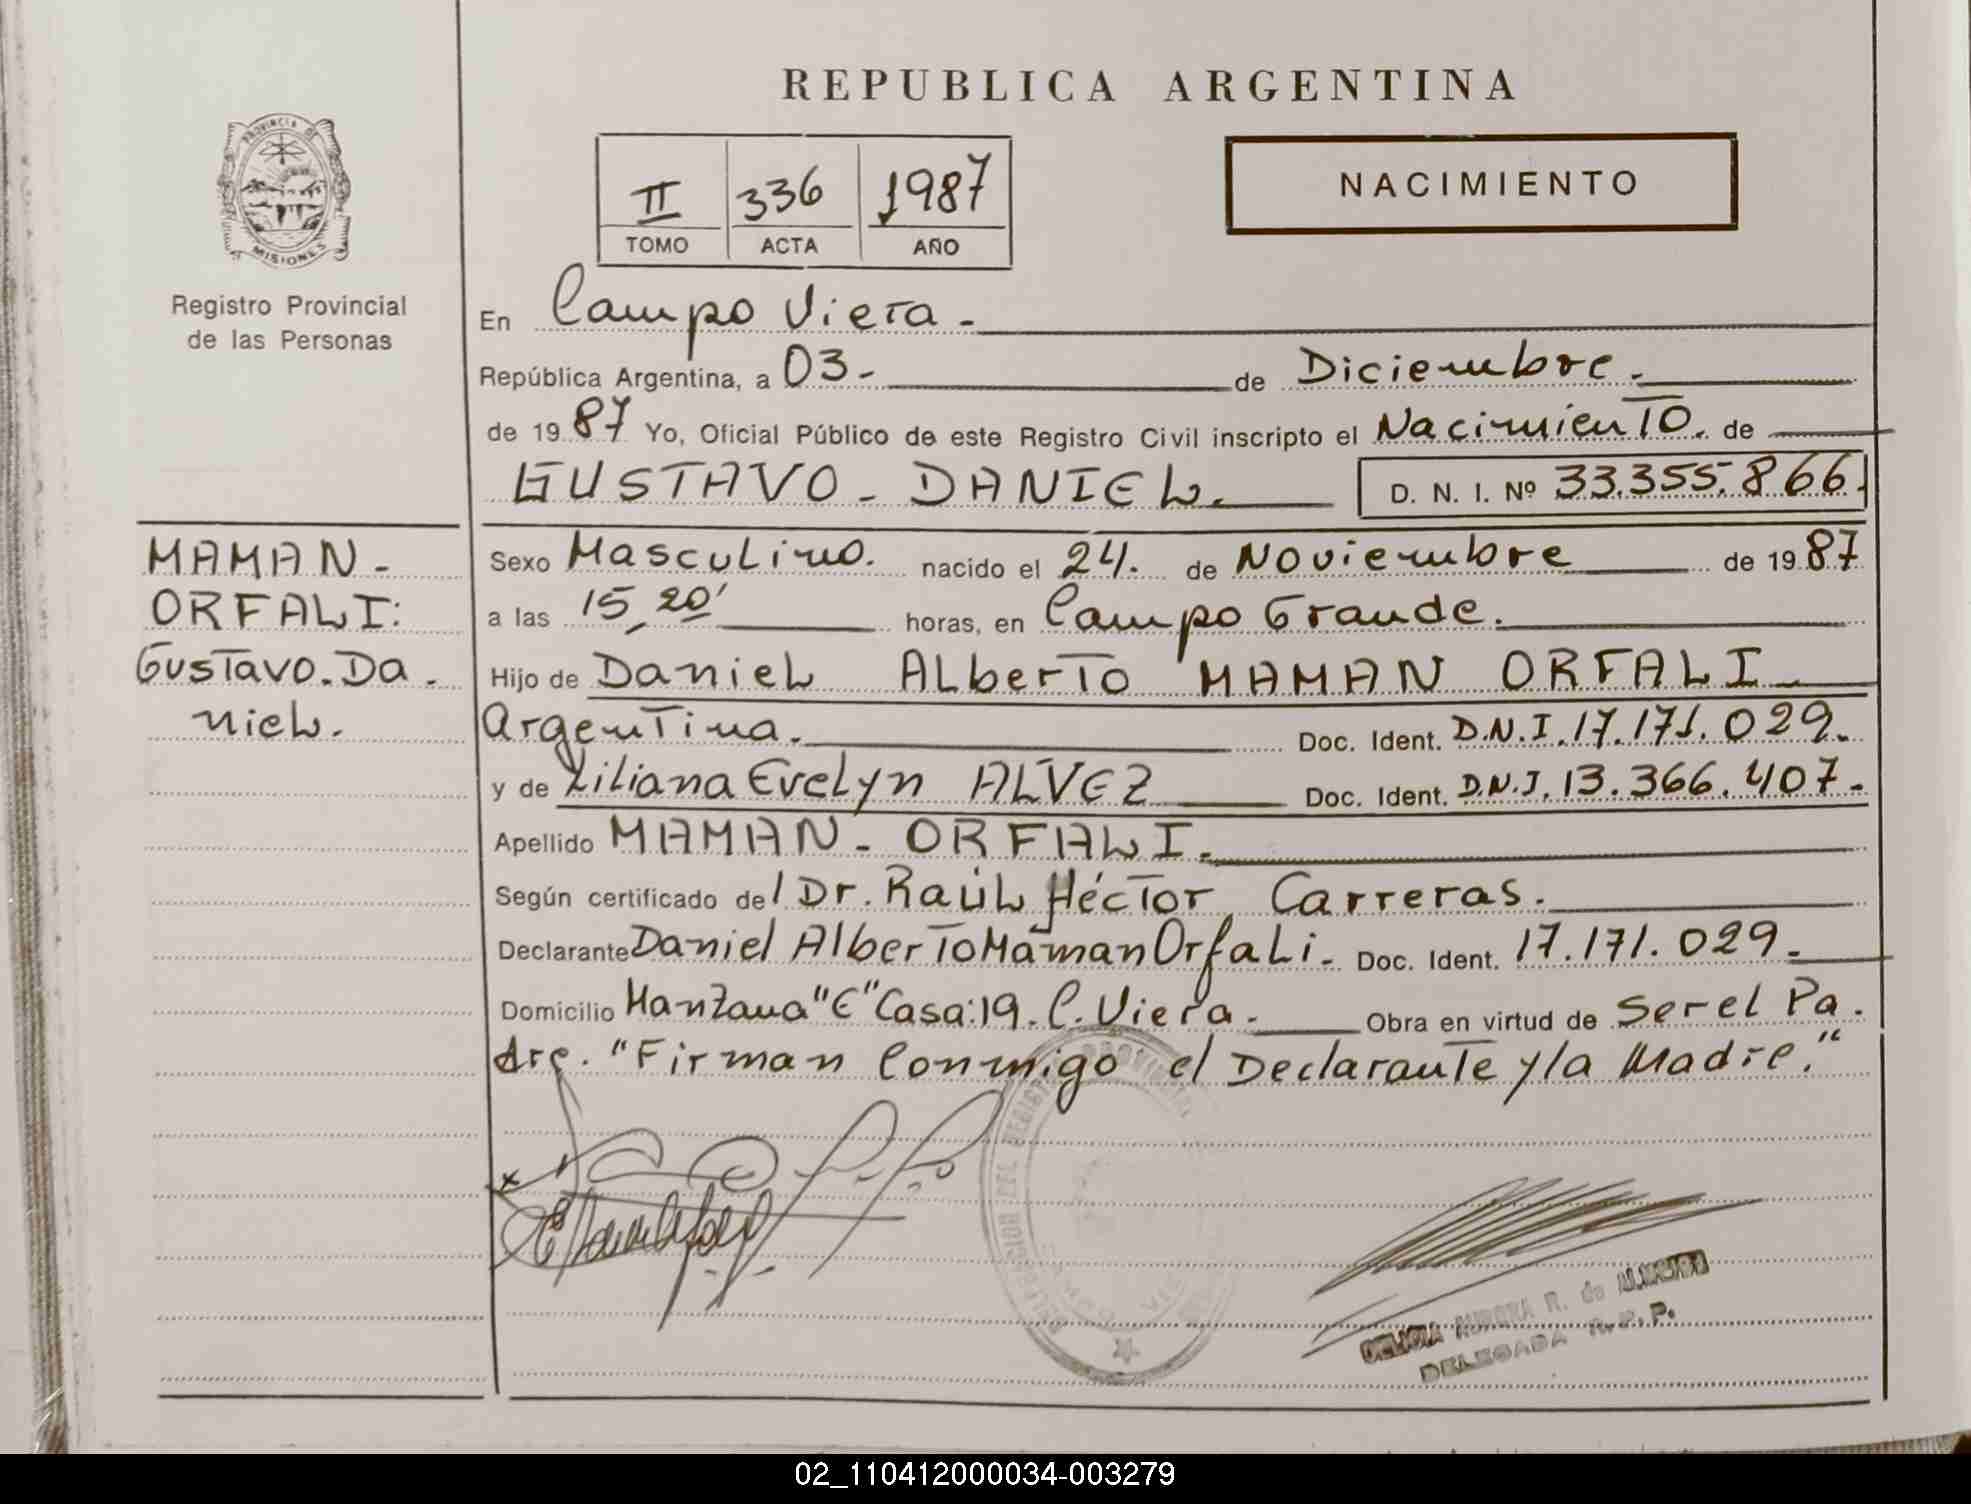 REPUBLICA ARGENTINA
PROVINCIA DE
MISIONES
Registro Provincial
de las Personas
NACIMIENTO
II 336 1987
TOMO ACTA AÑO
En Campo Viera.-
República Argentina, a 03.- de Diciembre.
de 1987 Yo, Oficial Público de este Registro Civil inscripto el Nacimiento. de
GUSTAVO - DANIEL. D. N. I. Nº 33.355.866.
MAMAN -
ORFALI:
Gustavo. Da -
niel.
Sexo Masculino. nacido el 24. de Noviembre de 1987
a las 15,20' horas, en Campo Grande.
Hijo de Daniel Alberto MAMAN ORFALI
Argentina. Doc. Ident. D.N.I. 17.171.029.
y de Liliana Evelyn ALVEZ Doc. Ident. D.N.I. 13.366.407.-
Apellido MAMAN - ORFALI.
Según certificado del Dr. Raúl Héctor Carreras.
Declarante Daniel Alberto Maman Orfali. Doc. Ident. 17.171.029.-
Domicilio Manzana "E" Casa: 19. C. Viera. Obra en virtud de Ser el Pa.
dre. "Firman Conmigo el Declarante y la Madre."
DELEGADA R.P.P.
02_110412000034-003279